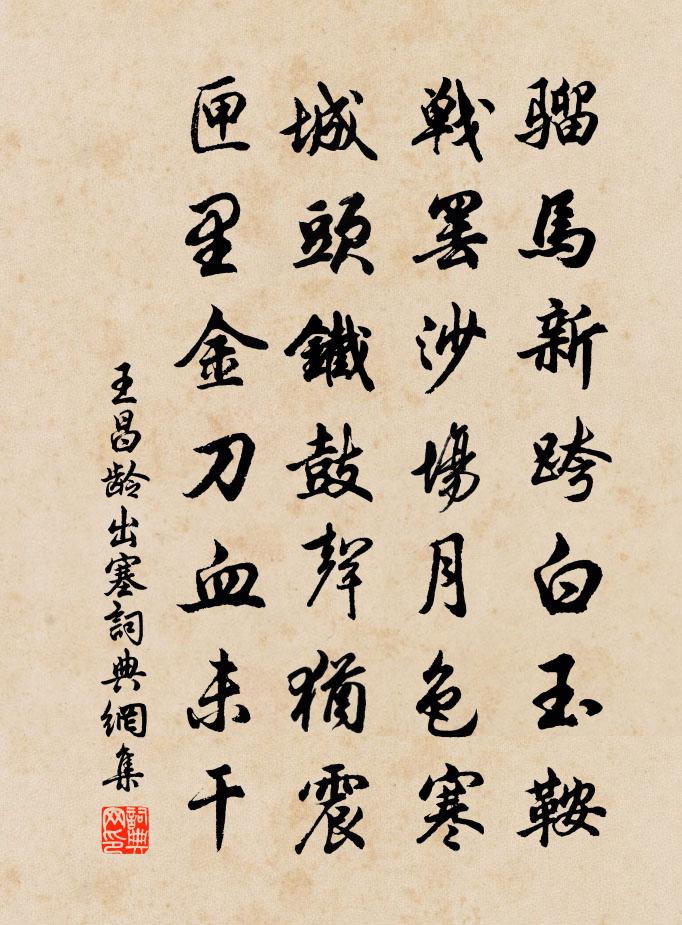 骝馬新跨白玉鞍
戦罢沙場月色寒
城頭鐵鼓聲猶震
匣里金刀血未干
王昌龄出塞詞典網集
詞典
网印